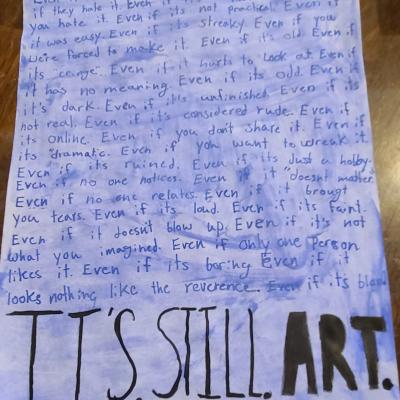 if they hate it. Even if
you hate it. Even if its not practical. Even if
it was easy. Even if its streaky. Even if you
were forced to make it. Even if it's old. Even if
its "cringe". Even if it hurts to look at. Even if
it has no meaning. Even if its odd. Even if
it's dark. Even if its unfinished. Even if its
not real. Even if its considered rude. Even if
its online. Even if you don't share it. Even if
its "dramatic. Even if you want to wreak it.
Even if its ruined. Even if its Just a hobby.
Even if no one notices. Even if it "doesnt matter.
Even if no one relates. Even if it brougt
you tears. Even if its loud. Even if its faint.
Even if it doesnt blow up. Even if it's not
what you imagined. Even if only one Person
likes it. Even if its boring Even if it
looks nothing like the reverence. Even if its
IT'S. STILL. ART.